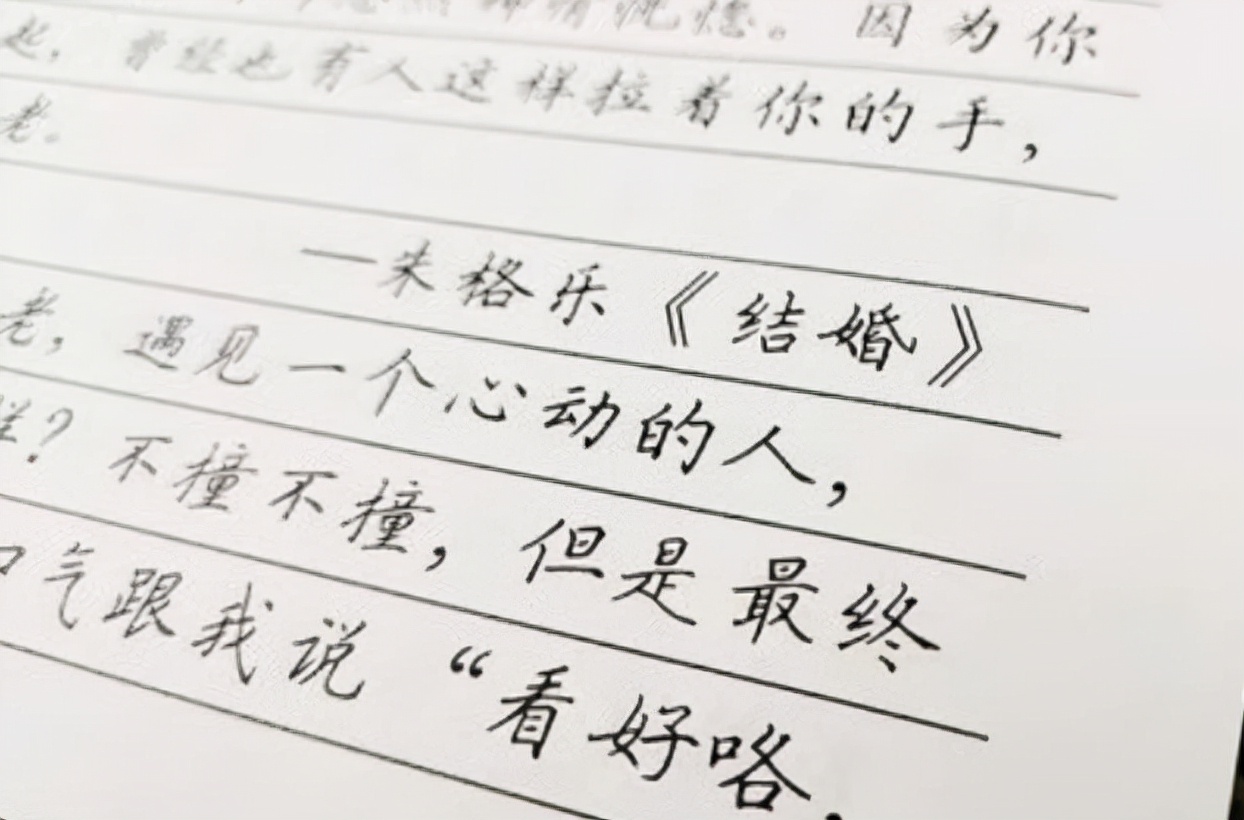 因为你
起，曾经也有人这样拉着你的手，
老。
—朱格乐《结婚》
老，遇见一个心动的人，
样？不撞不撞，但是最终
口气跟我说“看好咯，